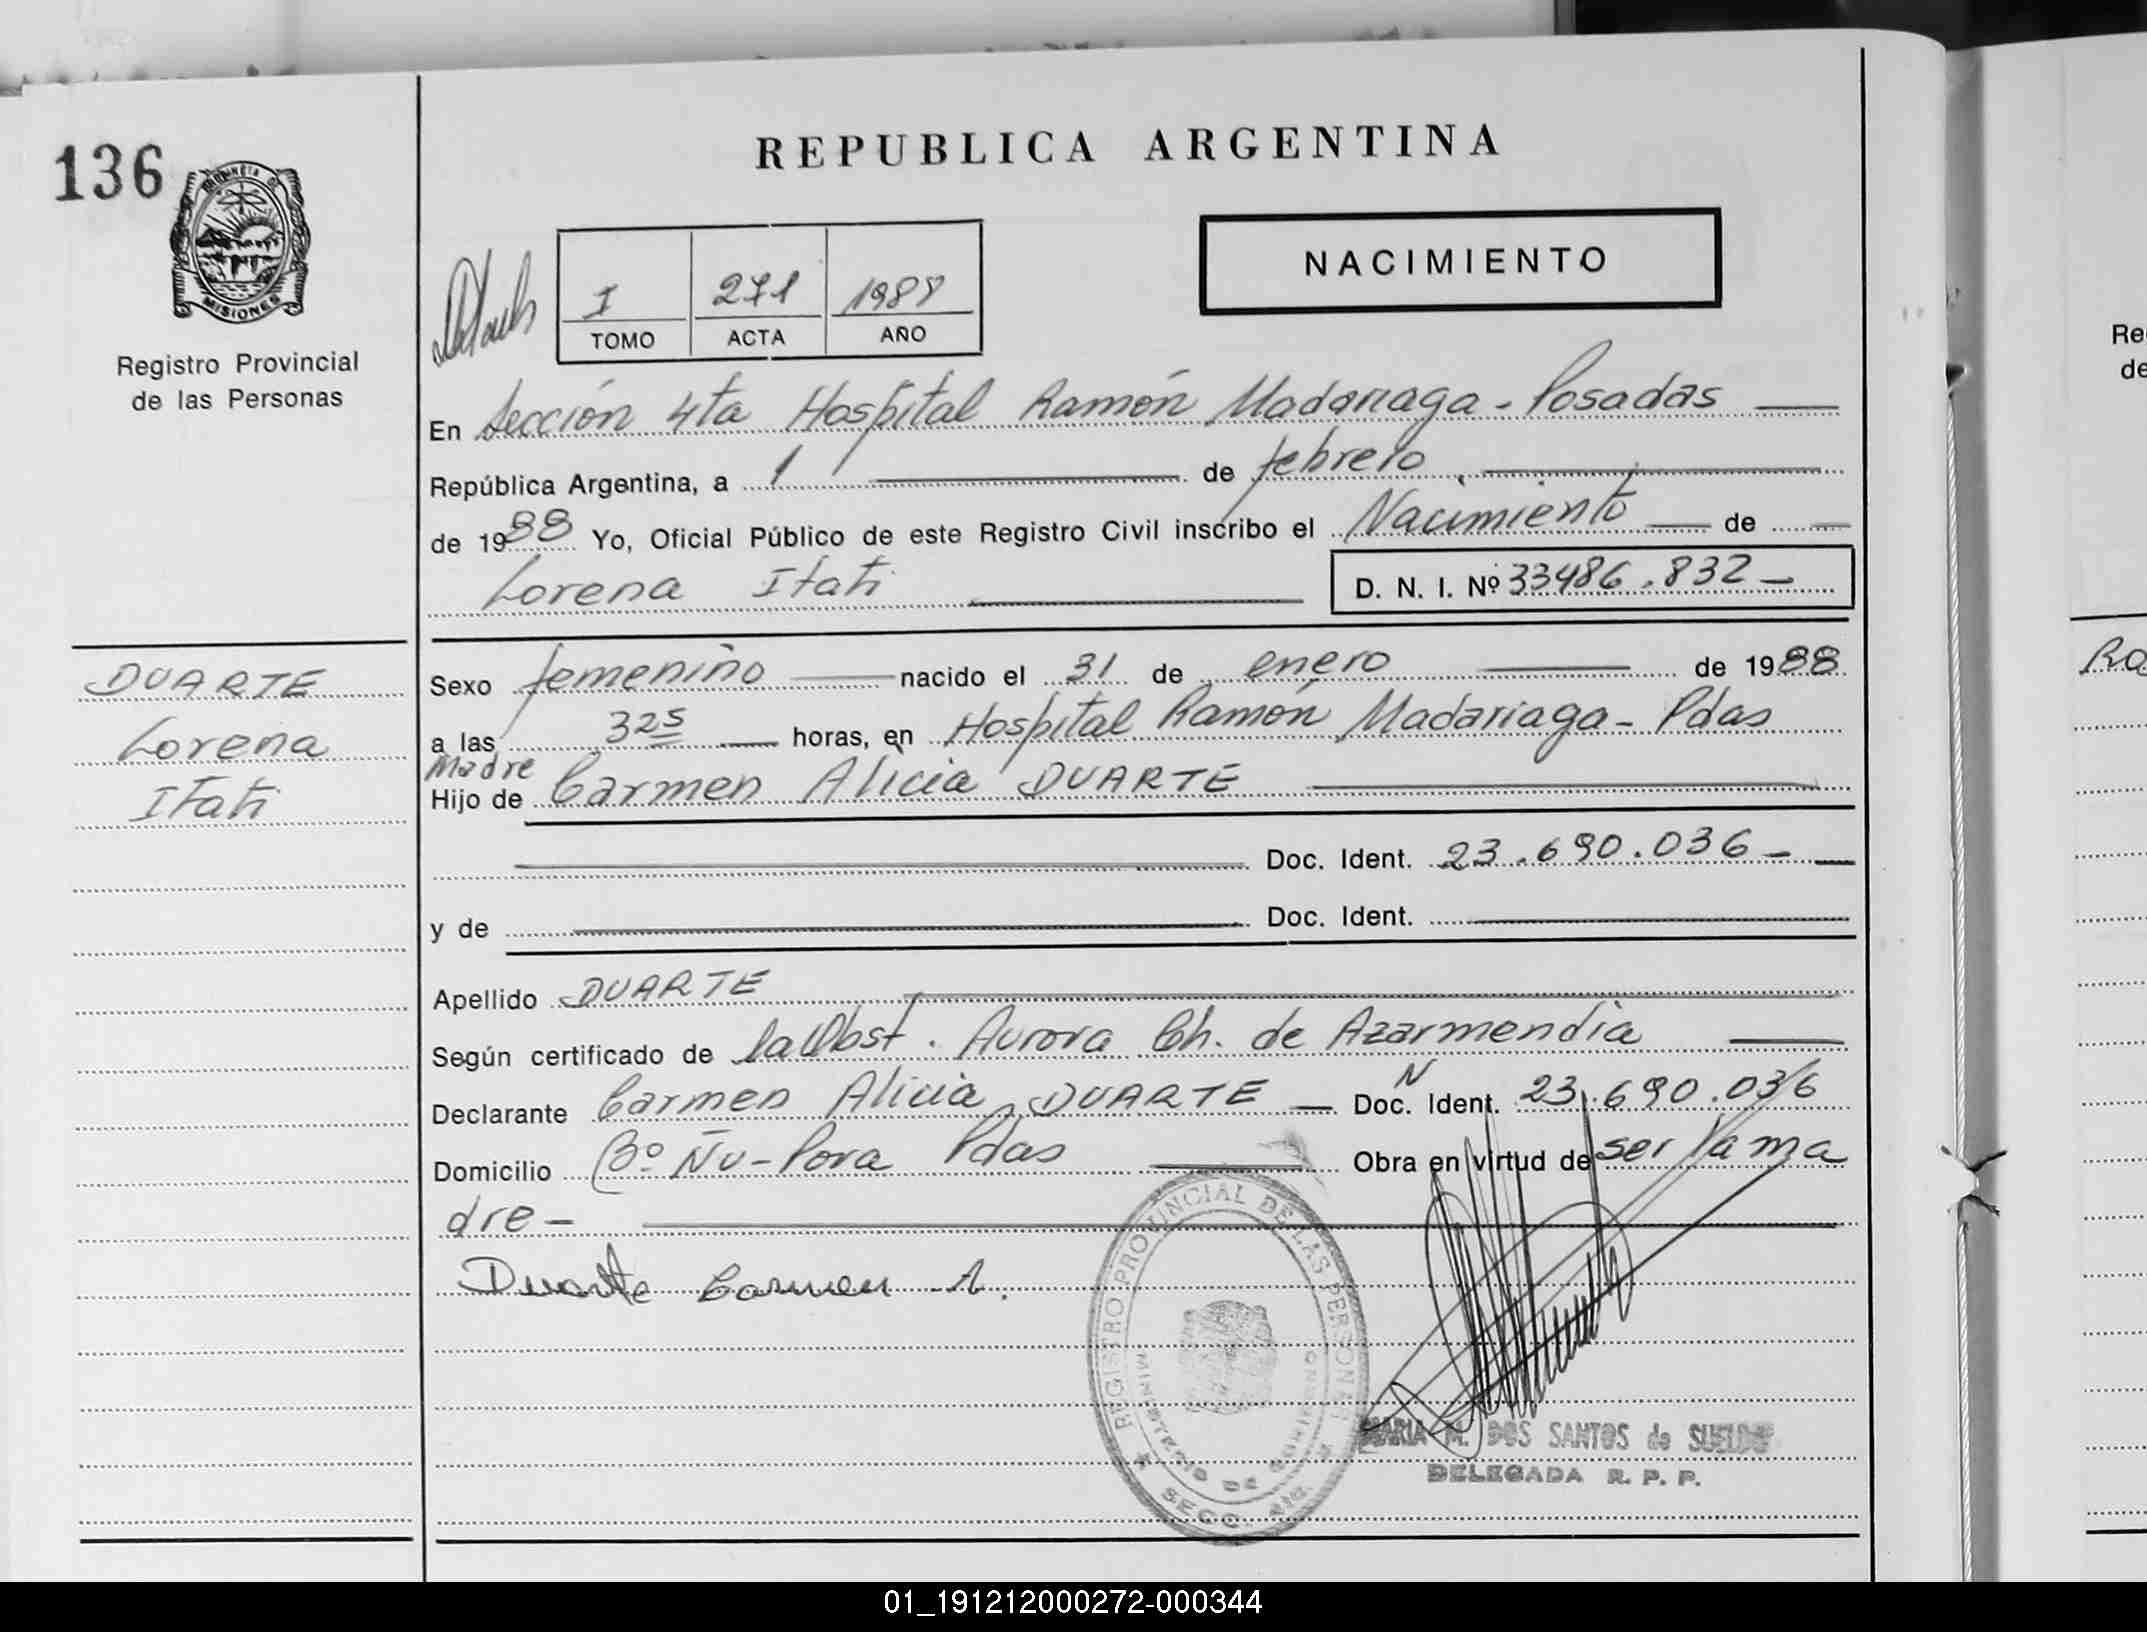 REPUBLICA ARGENTINA
136
PROVINCIA DE
MISIONES
Registro Provincial
de las Personas
NACIMIENTO
I 271 1988
TOMO ACTA AÑO
En Sección 4ta Hospital Ramón Madariaga - Posadas
República Argentina, a 1 de febrero
de 1988 Yo, Oficial Público de este Registro Civil inscribo el Nacimiento de
Lorena Itati D. N. I. Nº 33486.832 -
DUARTE
Lorena
Itati
Sexo femenino nacido el 31 de enero de 1988
a las 325 horas, en Hospital Ramón Madariaga - Pdas
Madre
Hijo de Carmen Alicia DUARTE
Doc. Ident. 23.690.036 -
y de Doc. Ident.
Apellido DUARTE
Según certificado de la Obst. Aurora Ch. de Azarmendia
Declarante Carmen Alicia DUARTE - Doc. N Ident. 23.690.036
Domicilio Bº Ñu-Pora Pdas Obra en virtud de ser la ma
dre -
Duarte Carmen A.
REGISTRO PROVINCIAL DE LAS PERSONAS
MINISTERIO DE GOBIERNO
SECC. 4ta.
MARIA M. DOS SANTOS de SUELDO
DELEGADA R. P. P.
Re
de
Ro
01_191212000272-000344